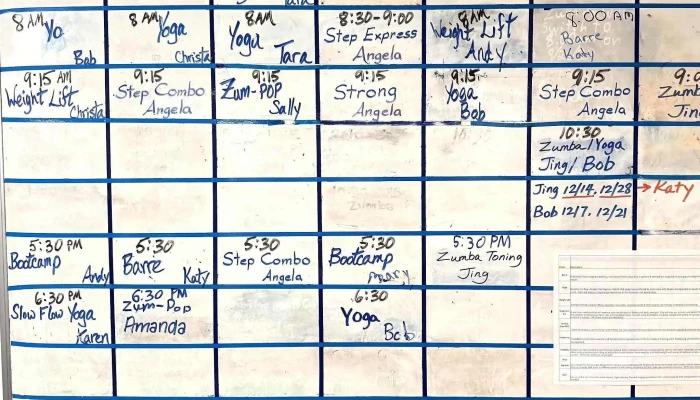 8 AM
Yo
Bob
8 AM
Yoga
Christa
8AM
Yoga
Tara
8:30-9:00
Step Express
Angela
8AM
Weight Lift
Andy
8:00 AM
Barre
Katy
9:15 AM
Weight Lift
Christa
9:15
Step Combo
Angela
9:15
Zum-POP
Sally
9:15
Strong
Angela
9:15
Yoga
Bob
9:15
Step Combo
Angela
10:30
Zumba/Yoga
Jing/Bob
Zumba
Jing 12/14, 12/28 → Katy
Bob 12/7, 12/21
5:30 PM
Bootcamp
Andy
5:30
Barre
Katy
5:30
Step Combo
Angela
5:30
Bootcamp
Mary
5:30 PM
Zumba Toning
Jing
6:30 PM
Slow Flow Yoga
Karen
6:30 PM
Zum-Pop
Amanda
6:30
Yoga
Bob